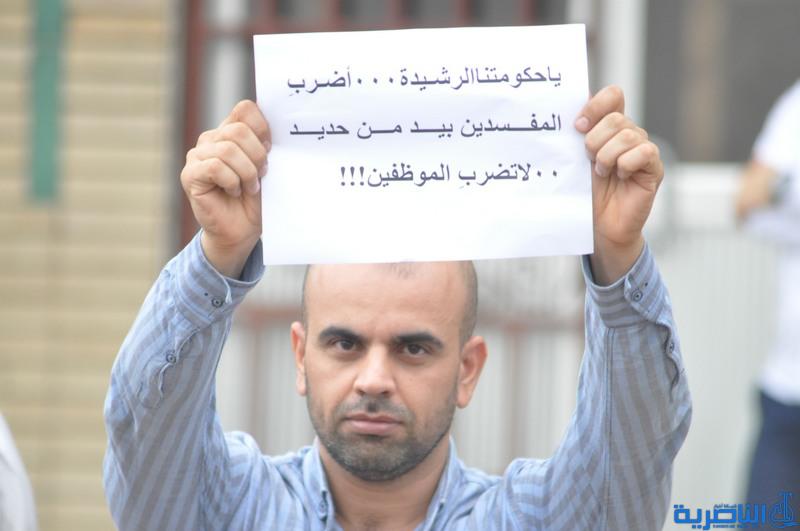 ياحكومتناالرشيدة٠٠٠أضربِ
المفسدين بيد من حديد
٠٠لاتضربِ الموظفين!!!
الناصرية